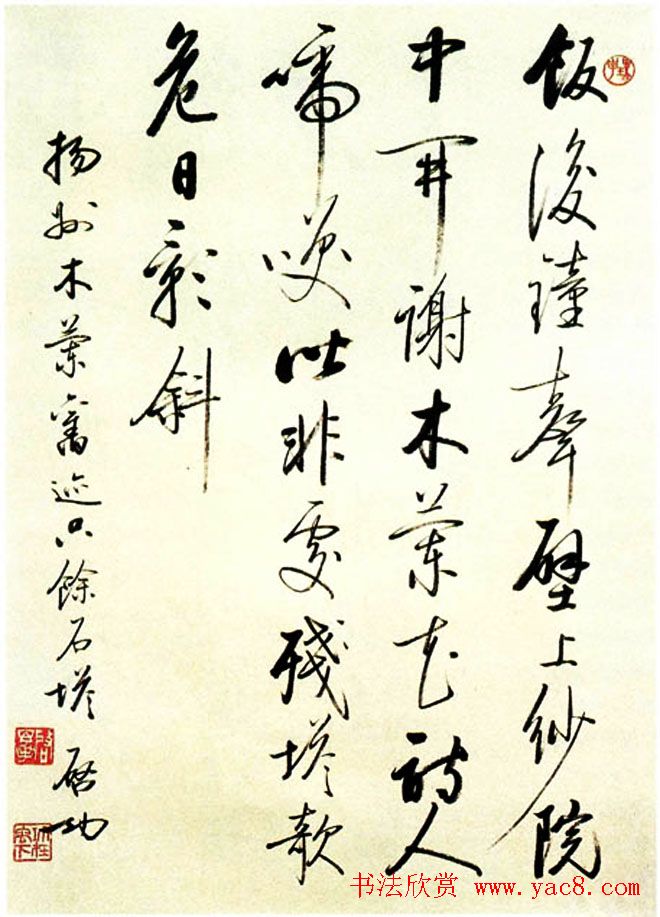 飯後鐘聲壁上紗院
中开謝木蘭花詩人
啼咲皆非處殘塔欹
危日影斜
揚州木蘭舊迹只餘石塔 啟功
书法欣赏 www.yac8.com